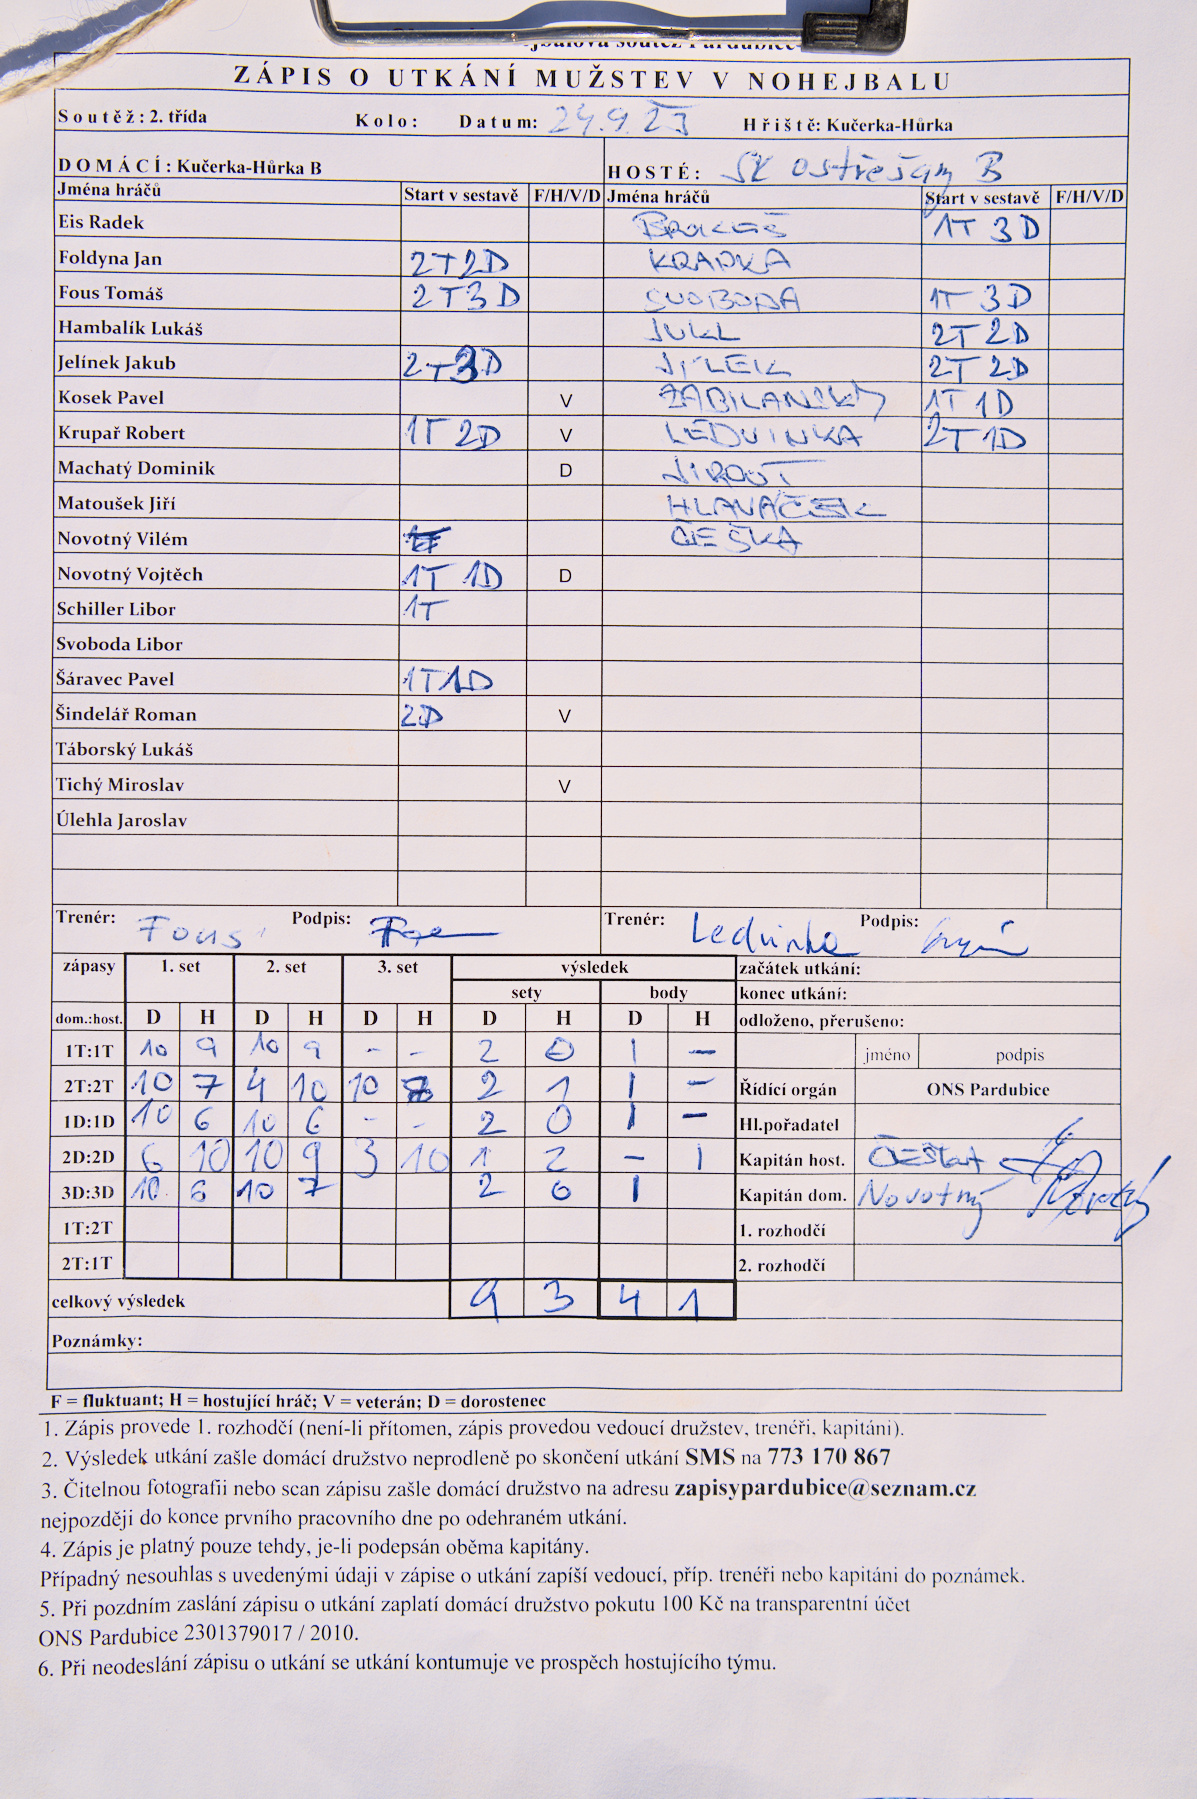 ZÁPIS O UTKÁNÍ MUŽSTEV V NOHEJBALU
Soutěž: 2. třída Kolo: Datum: 24.9.23 Hřiště: Kučerka-Hůrka
DOMÁCÍ: Kučerka-Hůrka B HOSTÉ: SK OSTŘEŠANY B
Jména hráčů Start v sestavě F/H/V/D Jména hráčů Start v sestavě F/H/V/D
Eis Radek 1T 3D
Foldyna Jan 2T2D
Fous Tomáš 2T3D SVOBODA 1T 3D
Hambalík Lukáš JUKL 2T 2D
Jelínek Jakub 2T3D JÍLEK 2T 2D
Kosek Pavel V 1T 1D
Krupař Robert 1T 2D V LEDVINKA 2T 1D
Machatý Dominik D JIROUT
Matoušek Jiří HLAVÁČEK
Novotný Vilém ČEŠKA
Novotný Vojtěch 1T 1D D
Schiller Libor 1T
Svoboda Libor
Šáravec Pavel 1T1D
Šindelář Roman 2D V
Táborský Lukáš
Tichý Miroslav V
Úlehla Jaroslav
Trenér: Fous Podpis: Trenér: Ledvinka Podpis:
zápasy 1. set 2. set 3. set výsledek začátek utkání:
sety body konec utkání:
dom.:host. D H D H D H D H D H odloženo, přerušeno:
1T:1T 10 9 10 9 - - 2 0 1 - jméno podpis
2T:2T 10 7 4 10 10 8 2 1 1 - Řídící orgán ONS Pardubice
1D:1D 10 6 10 6 - - 2 0 1 - Hl.pořadatel
2D:2D 6 10 10 9 3 10 1 2 - 1 Kapitán host. ČEŠKA
3D:3D 10 6 10 7 2 0 1 Kapitán dom. Novotný
1T:2T 1. rozhodčí
2T:1T 2. rozhodčí
celkový výsledek 9 3 4 1
Poznámky:
F = fluktuant; H = hostující hráč; V = veterán; D = dorostenec
1. Zápis provede 1. rozhodčí (není-li přítomen, zápis provedou vedoucí družstev, trenéři, kapitáni).
2. Výsledek utkání zašle domácí družstvo neprodleně po skončení utkání SMS na 773 170 867
3. Čitelnou fotografii nebo scan zápisu zašle domácí družstvo na adresu zapisypardubice@seznam.cz
nejpozději do konce prvního pracovního dne po odehraném utkání.
4. Zápis je platný pouze tehdy, je-li podepsán oběma kapitány.
Případný nesouhlas s uvedenými údaji v zápise o utkání zapíší vedoucí, příp. trenéři nebo kapitáni do poznámek.
5. Při pozdním zaslání zápisu o utkání zaplatí domácí družstvo pokutu 100 Kč na transparentní účet
ONS Pardubice 2301379017 / 2010.
6. Při neodeslání zápisu o utkání se utkání kontumuje ve prospěch hostujícího týmu.